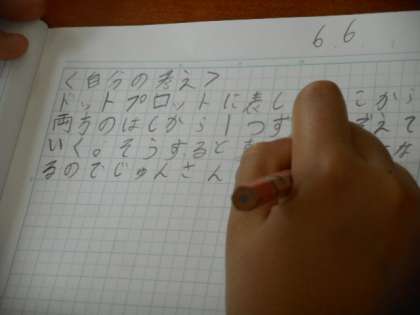 6.6
<自分の考え>
ドットプロットに表し こから
両方のはしから1つず ぞえて
いく。そうすると な
るのでじゅんさん